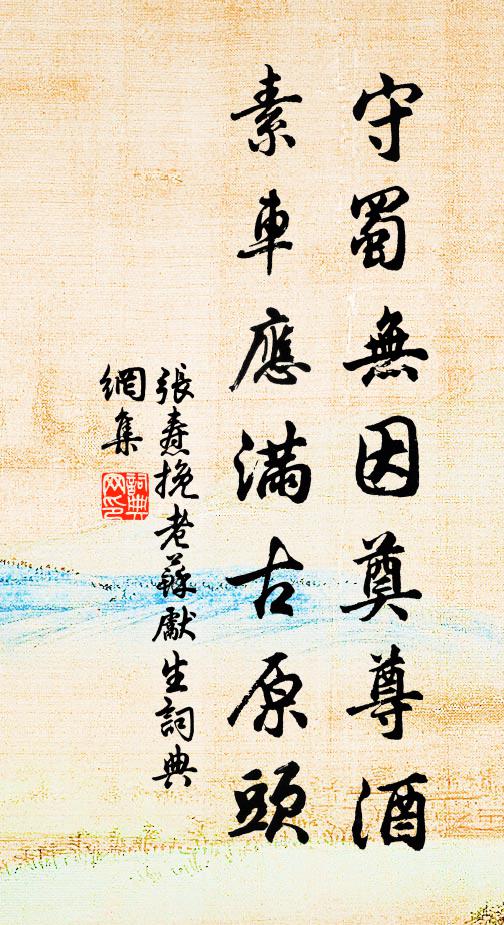 守蜀無因奠尊酒
素車應滿古原頭
張燾挽老蘇獻生詞典
網集
詞典
网印